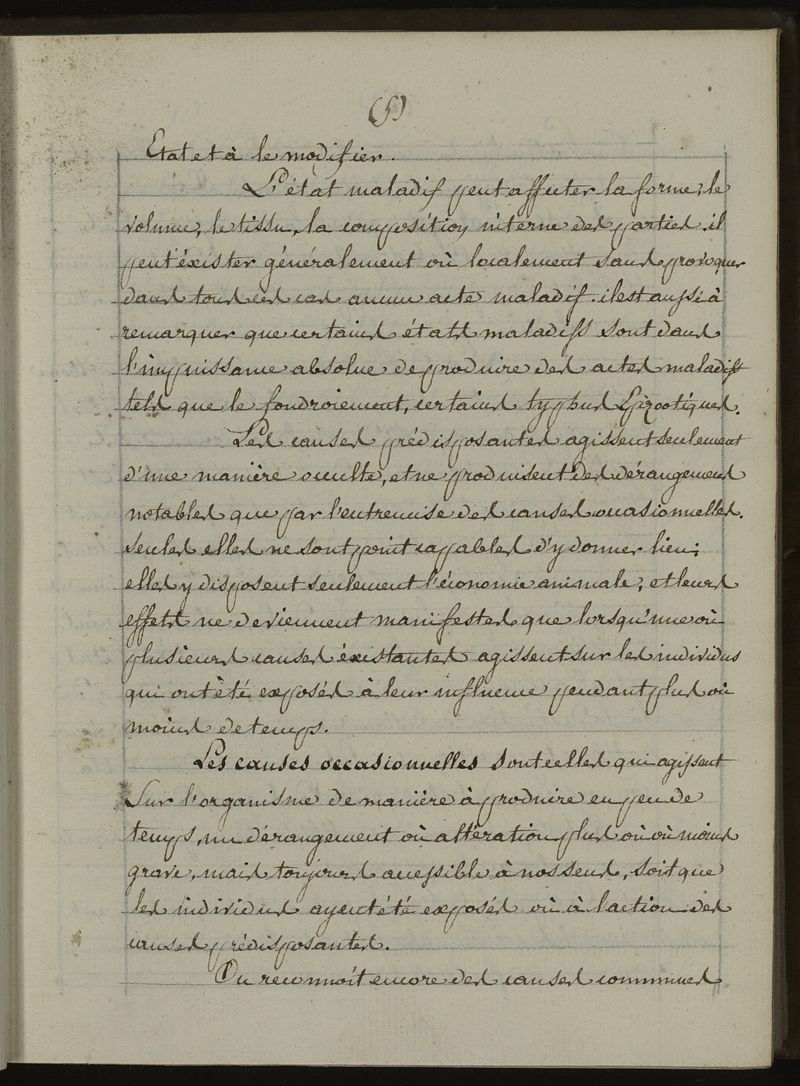 (5)
Etat et à le modifier.
L'état maladif peut affecter la forme, le
volume, le tissu, la composition interne des parties. il
peut éxister généralement où localement sans provoquer
dans tous ces cas aucun acte maladif. il est aussi à
remarquer que certains états maladifs sont dans
l'impuissance absolue de produire des actes maladifs
tels que le foudroiement, certains typhus Epizootiques.
Les causes prédisposantes agissent seulement
d'une manière occulte, et ne produisent des dérangemens
notables que par l'entremise des causes occasionnelles.
seules elles ne sont point capables d'y donner lieu;
elles y disposent seulement l'économie animale; et leurs
effets ne deviennent manifestes que lorsqu'une où
plusieurs causes éxistantes agissent sur les individus
qui ont été exposés à leur influence pendant plus où
moins de temps.
Les causes occasionnelles sont celles qui agissent
Sur l'organisme de manière à produire en peu de
temps, un dérangement où altération plus où où moins
grave, mais toujours accessible à nos sens, soit que
les individus ayent été exposés où à l'action des
causes prédisposantes.
On reconnoit encore des causes communes